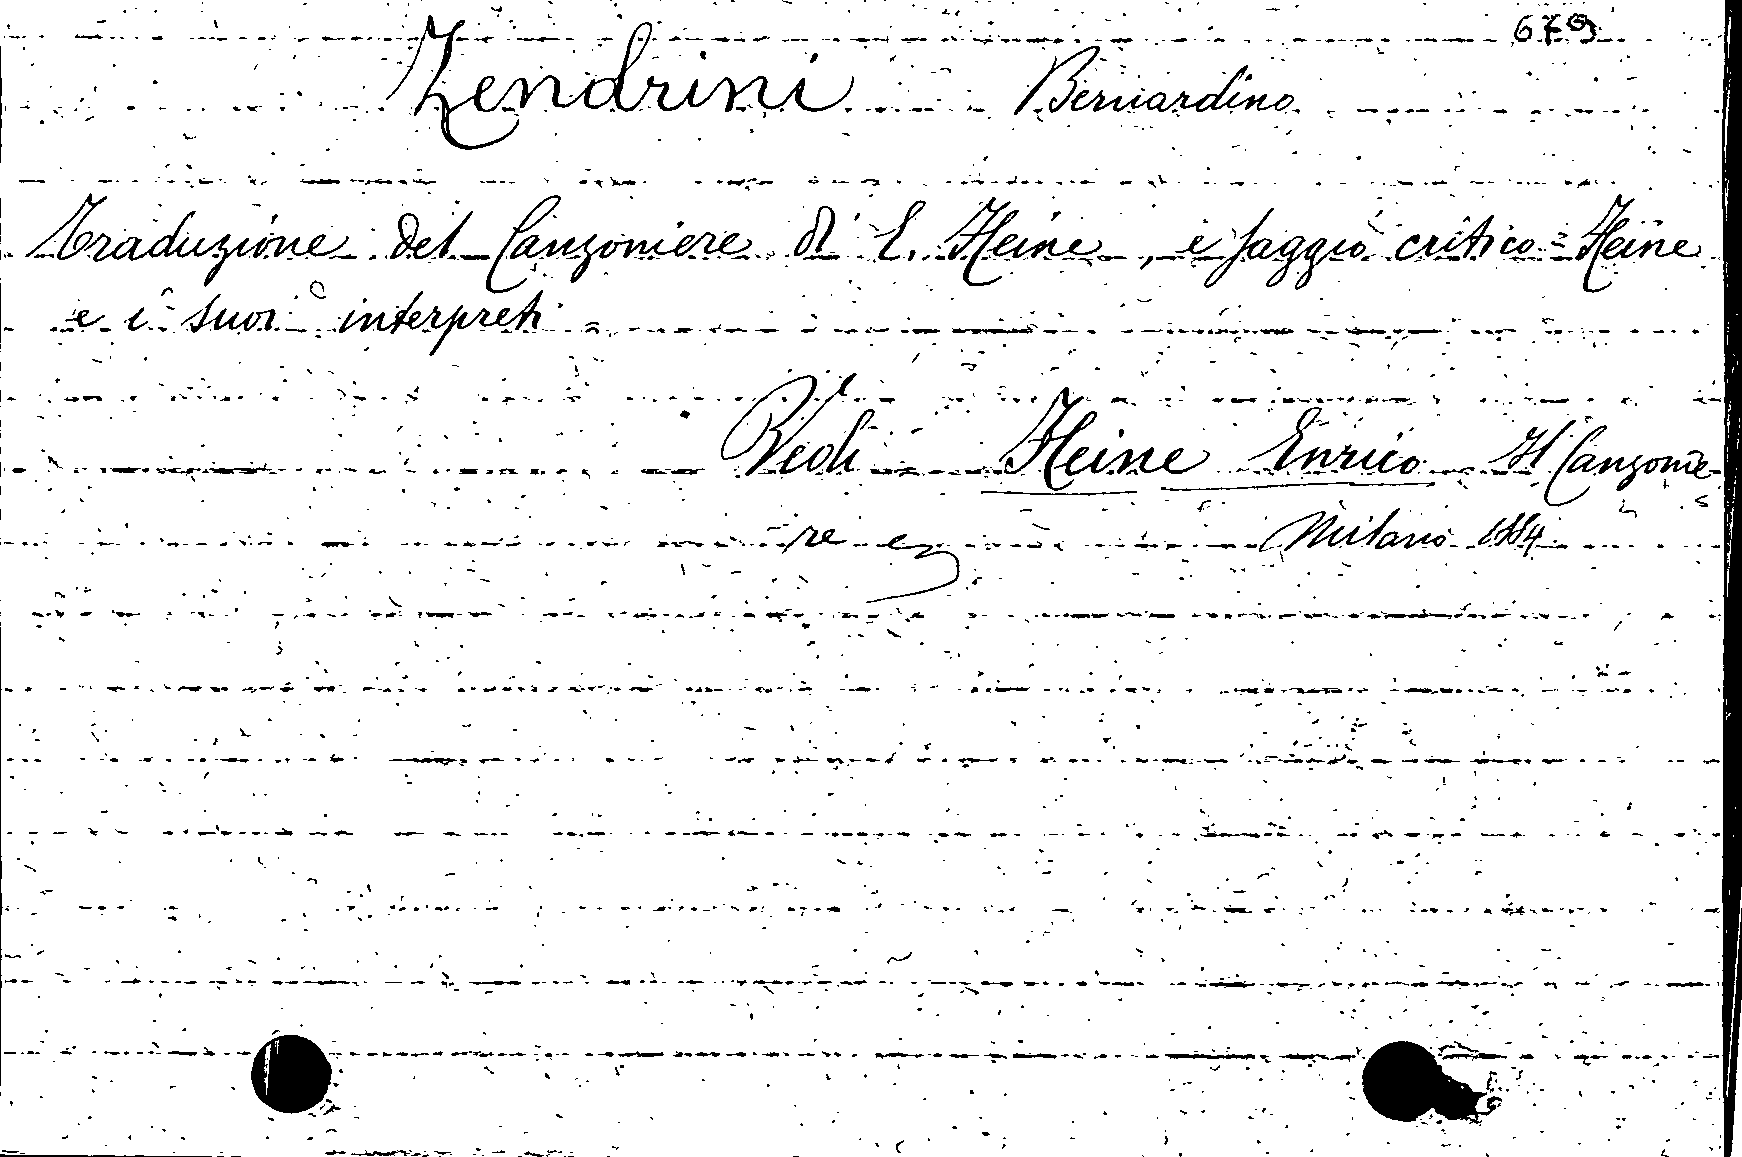 679
Zendrini Bernardino
Traduzione del Canzoniere di E. Heine, e saggio critico = Heine
e i suoi interpreti
Vedi Heine Enrico Il Canzonie-
re Milano 1884